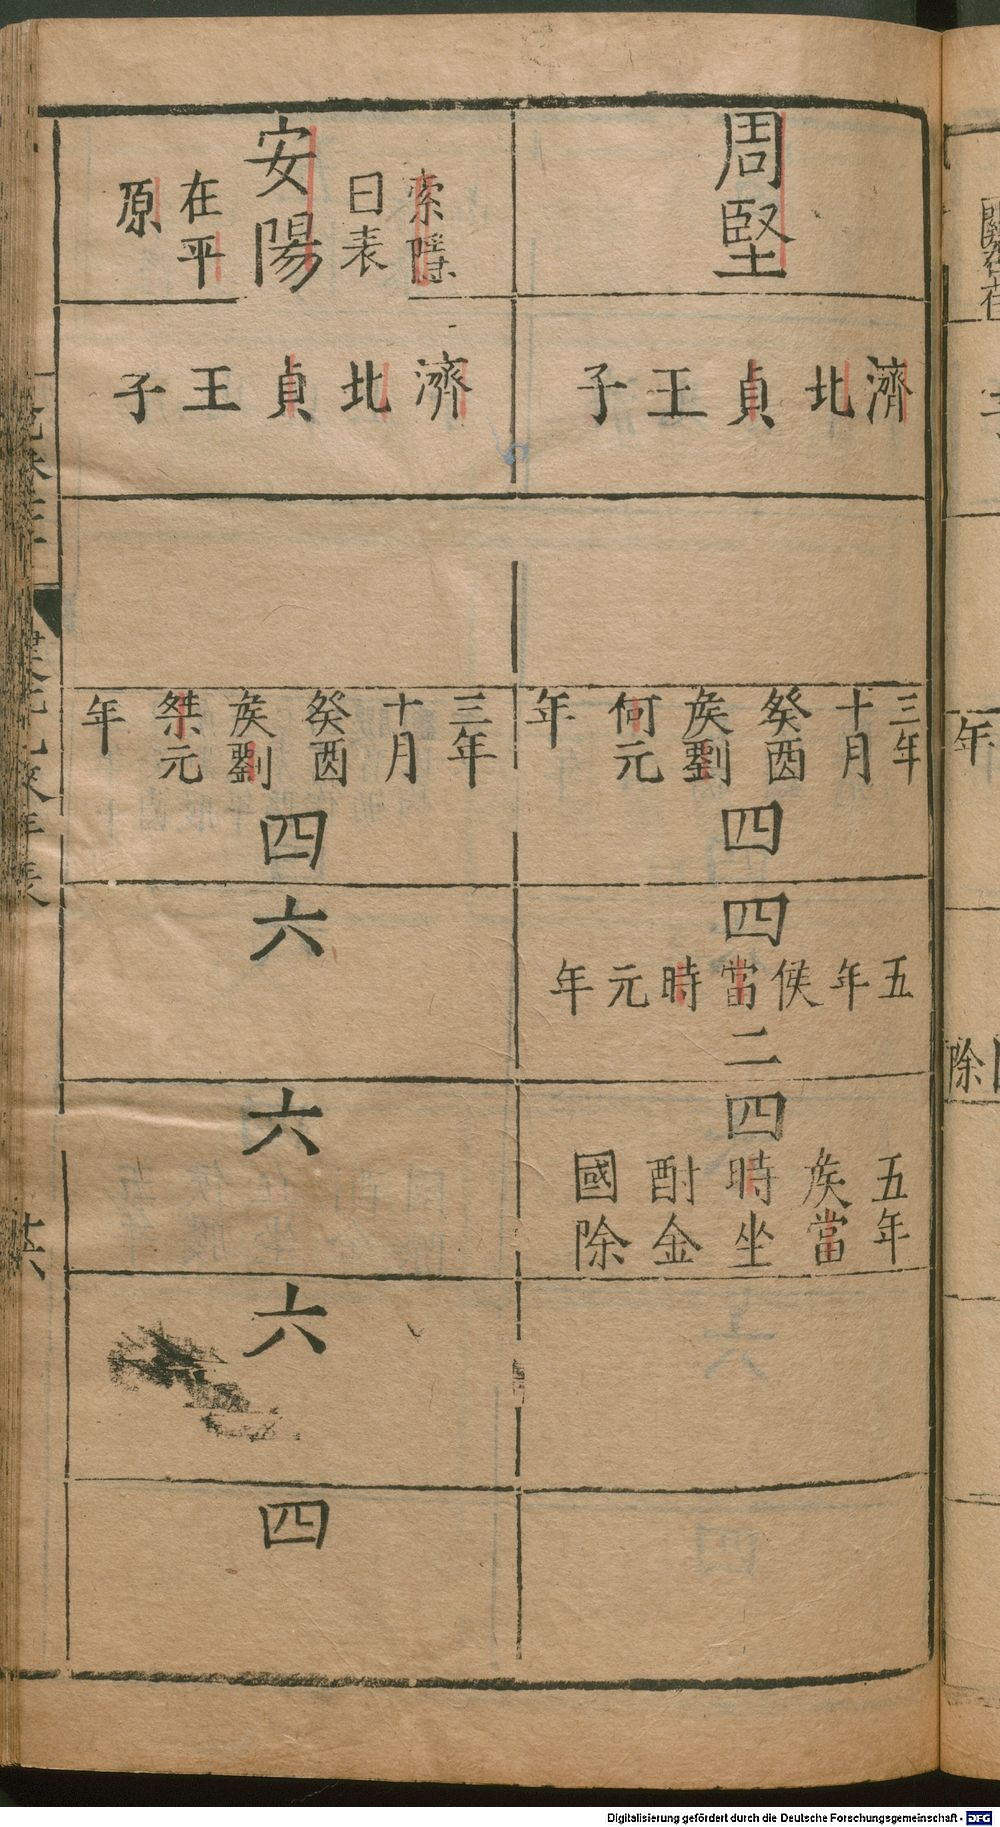 周堅
濟北貞王子
三年十月癸酉矦劉何元年
四
四
五年侯當時元年
二
四
五年矦當時坐酎金國除
安陽
索隱曰表在平原
濟北貞王子
三年十月癸酉矦劉桀元年
四
六
六
六
四
年表
年
除
Digitalisierung gefördert durch die Deutsche Forschungsgemeinschaft - DFG